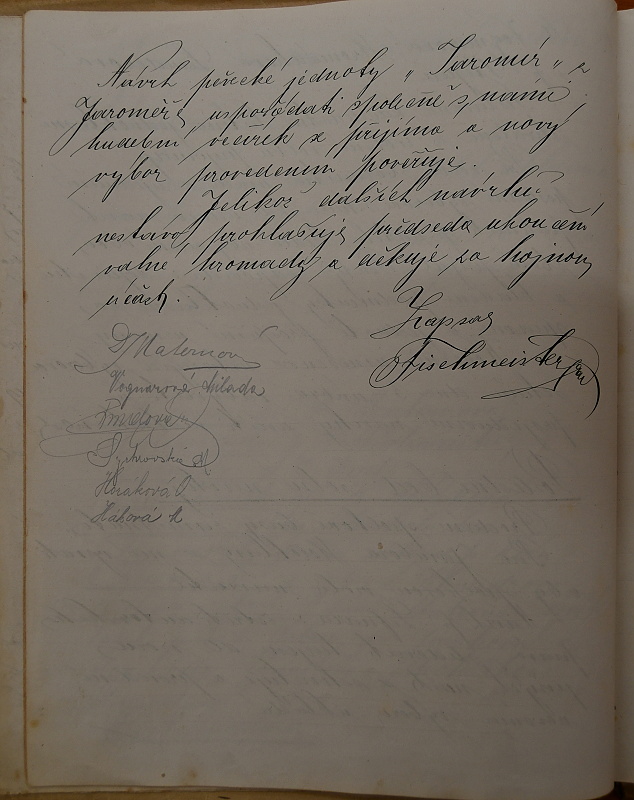 Návrh pěvecké jednoty „Jaromír" z
Jaroměře uspořádati společně s námi
hudební večírek se přijímá a nový
výbor provedením pověřuje.
Jelikož dalších návrhů
nestává, prohlašuje předseda ukončení
valné hromady a děkuje za hojnou
účast.
Zapsal
Fischmeister
Maternová
Vognarová Milada
Sychrovská A
Horáková O
Hátová A